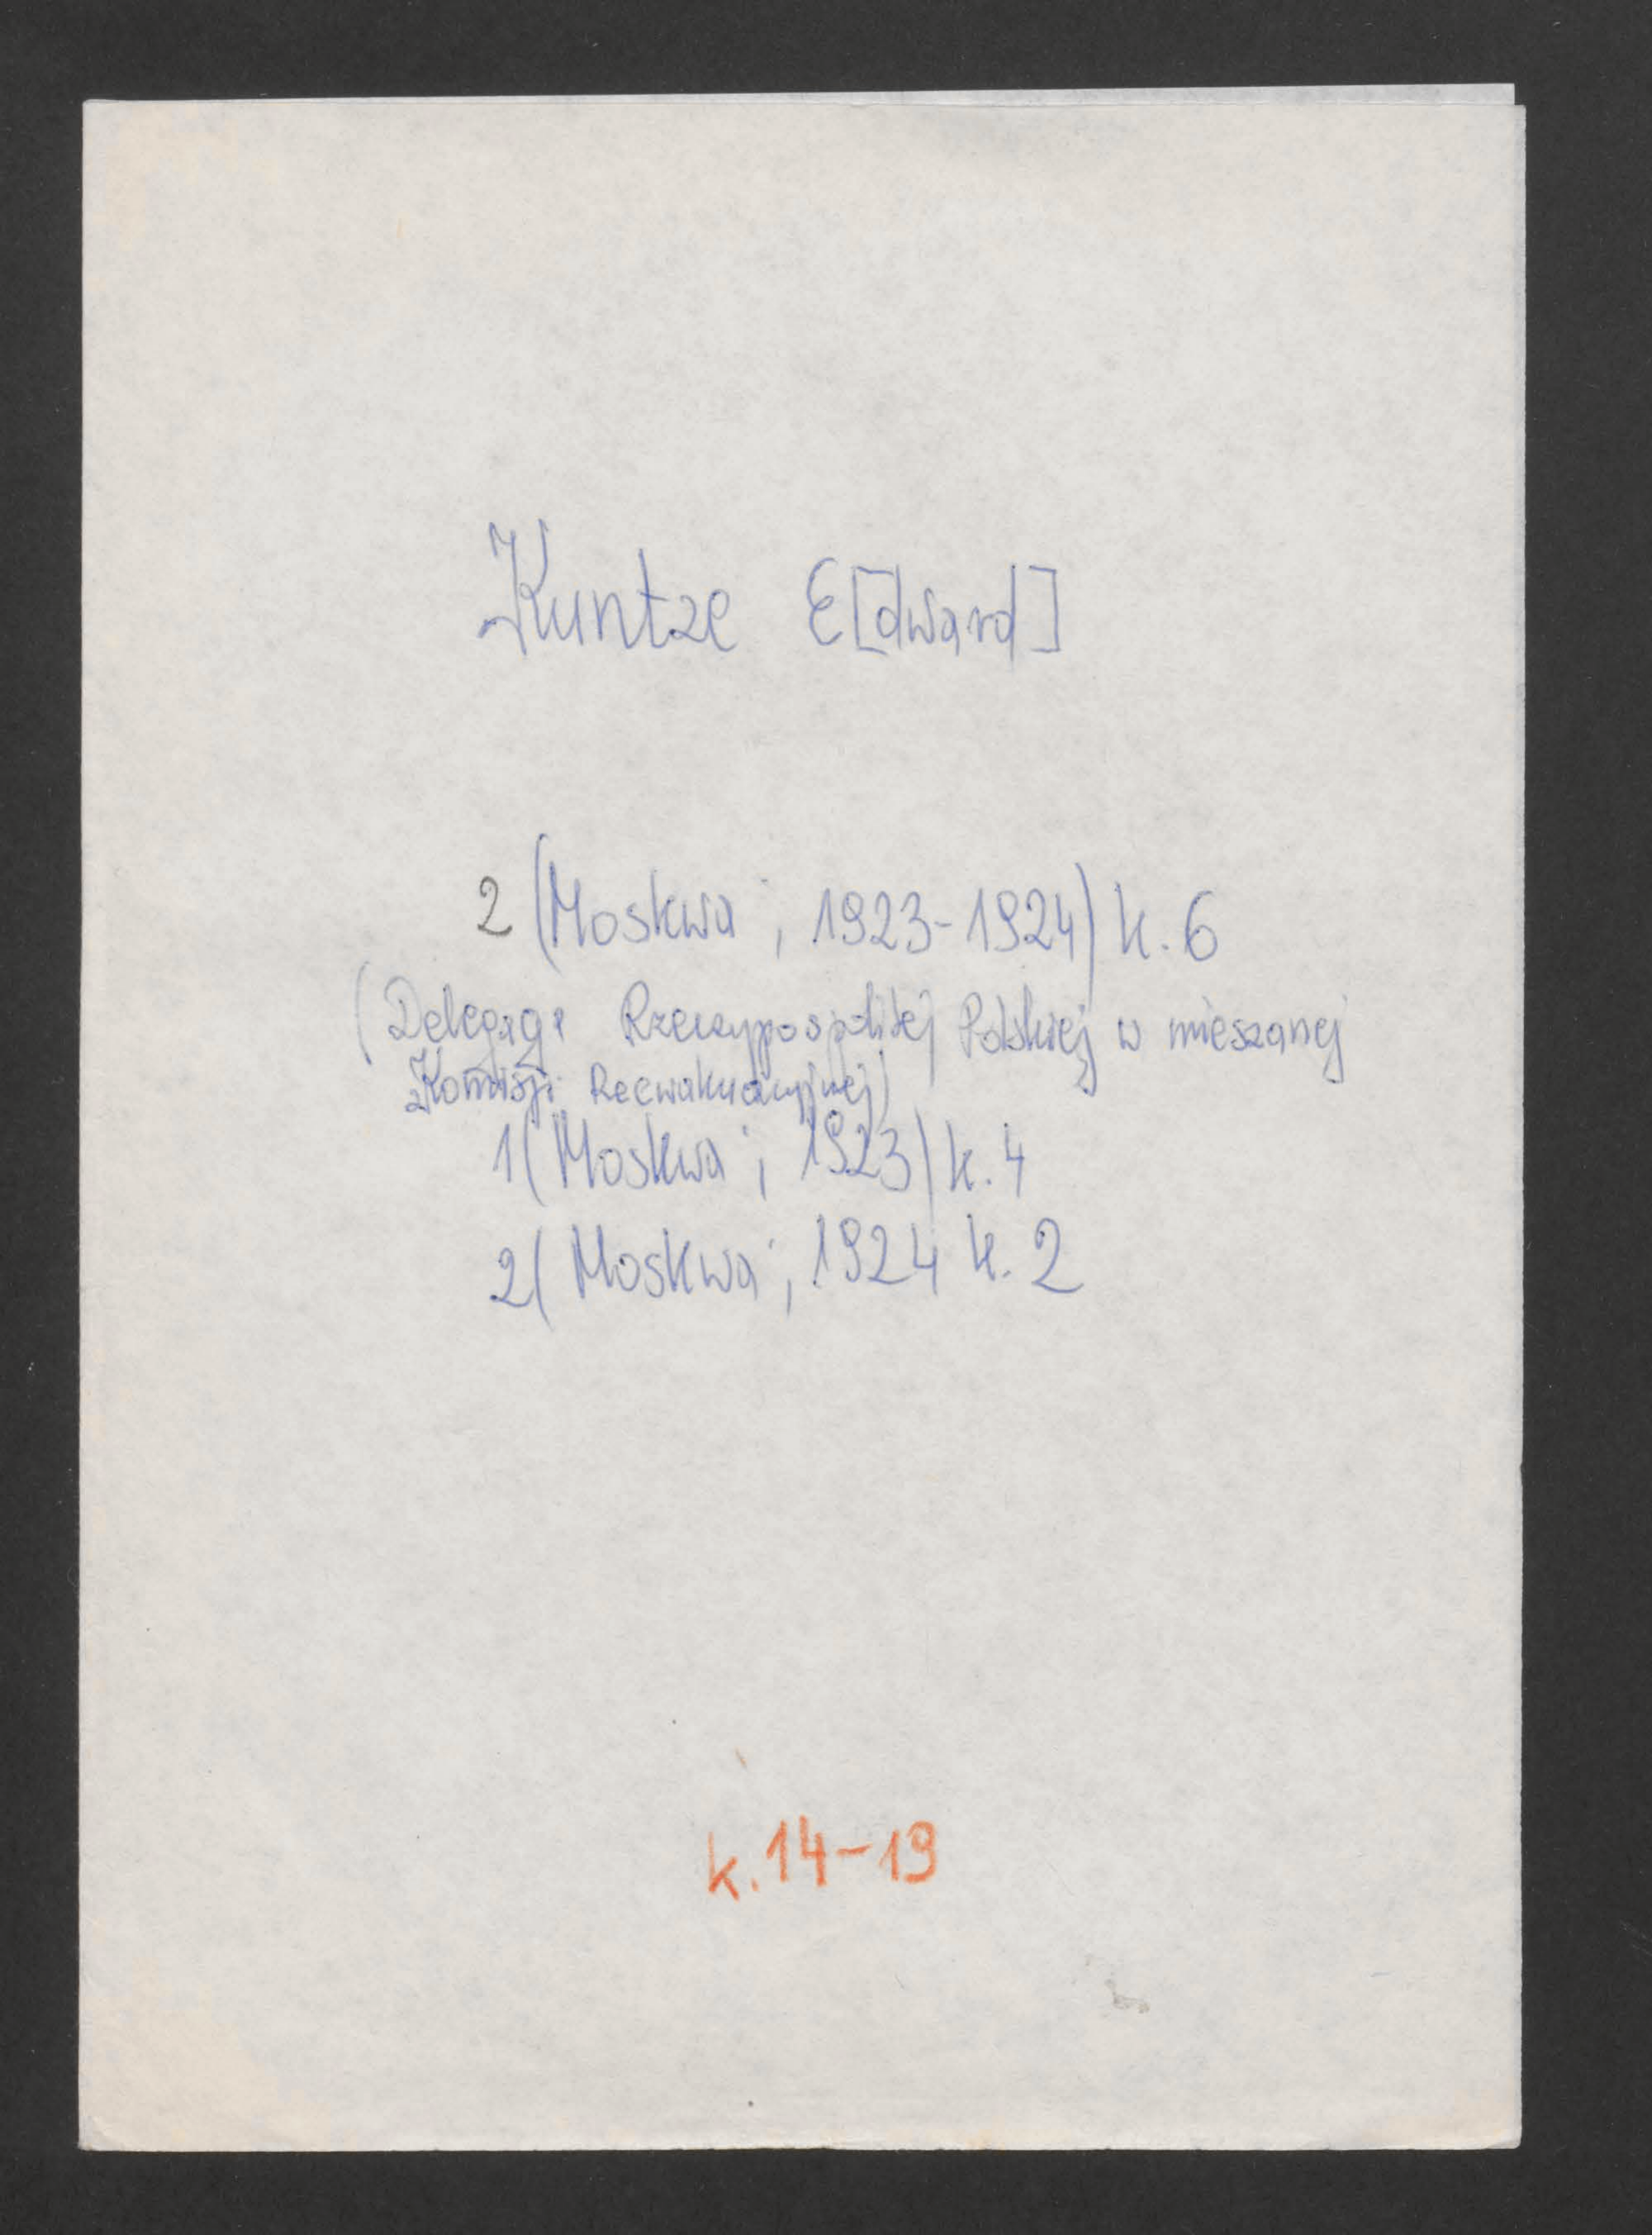 Kuntze E[dward]
2 (Moskwa ; 1923-1924) k. 6
(Delegacja Rzeczypospolitej Polskiej w mieszanej
Komisji Reewakuacyjnej)
1( Moskwa ; 1923) k. 4
2( Moskwa ; 1924 k. 2
k. 14-19